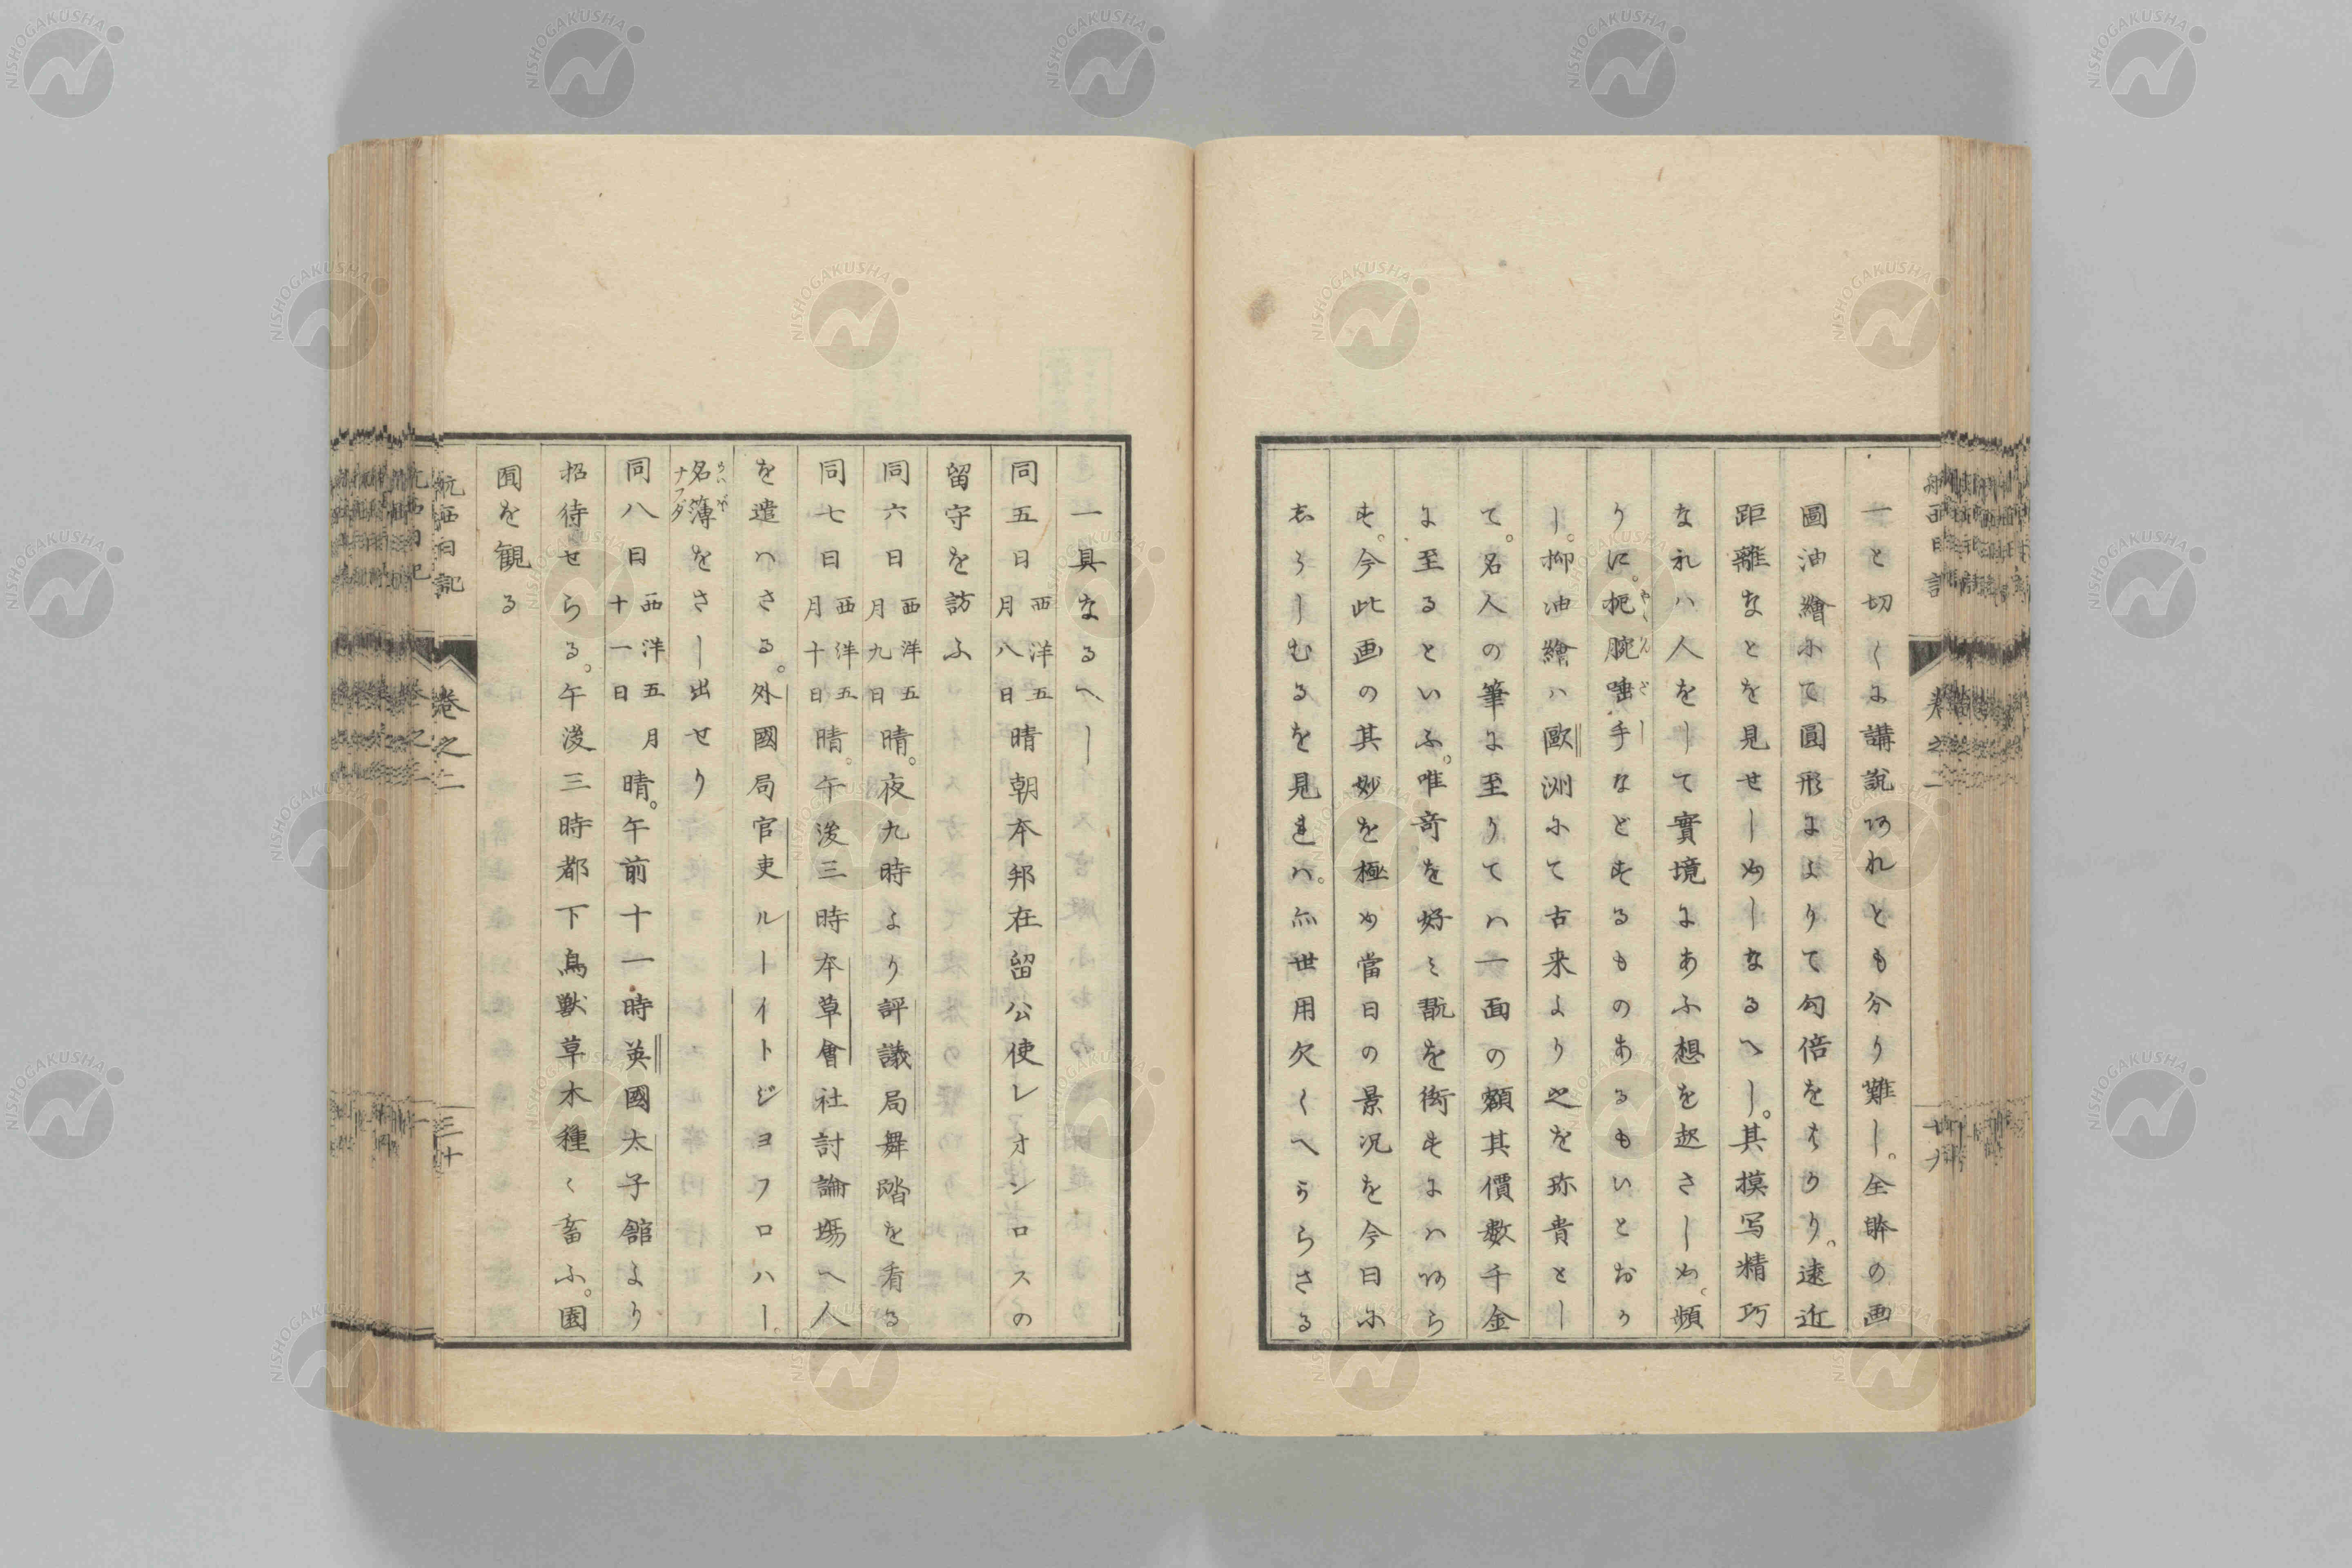 一と切〱に講說あれとも分り難し。全體の画
圖油繪にて圓形によりて勾倍をはかり。遠近
距離なとを見せしめしなるへし。其摸写精巧
なれハ人をして實境にあふ想を起さしめ。頻
りに。扼腕唾手などするものあるもいとおか
し。抑油繪ハ歐洲にて古来より之を珎貴とし
て。名人の筆に至りてハ一面の額其價数千金
に至るといふ。唯奇を好ミ翫を衒すにハあら
す。今此画の其妙を極め當日の景况を今日に
志らしむるを見れハ。亦世用欠くへからさる
一具なるへし
同五日西洋五月八日晴朝本邦在留公使レオンロスの
留守を訪ふ
同六日西洋五月九日晴。夜九時より評議局舞踏を看る
同七日西洋五月十日晴。午後三時本草會社討論場へ人
を遣ハさる。外國局官吏ルーイトジヨフロハー。
名簿をさし出せり
同八日西洋五月十一日晴。午前十一時英國太子舘より
招待せらる。午後三時都下鳥獣草木種〱畜ふ。園
囿を観る
航西日記
巻之二
三十